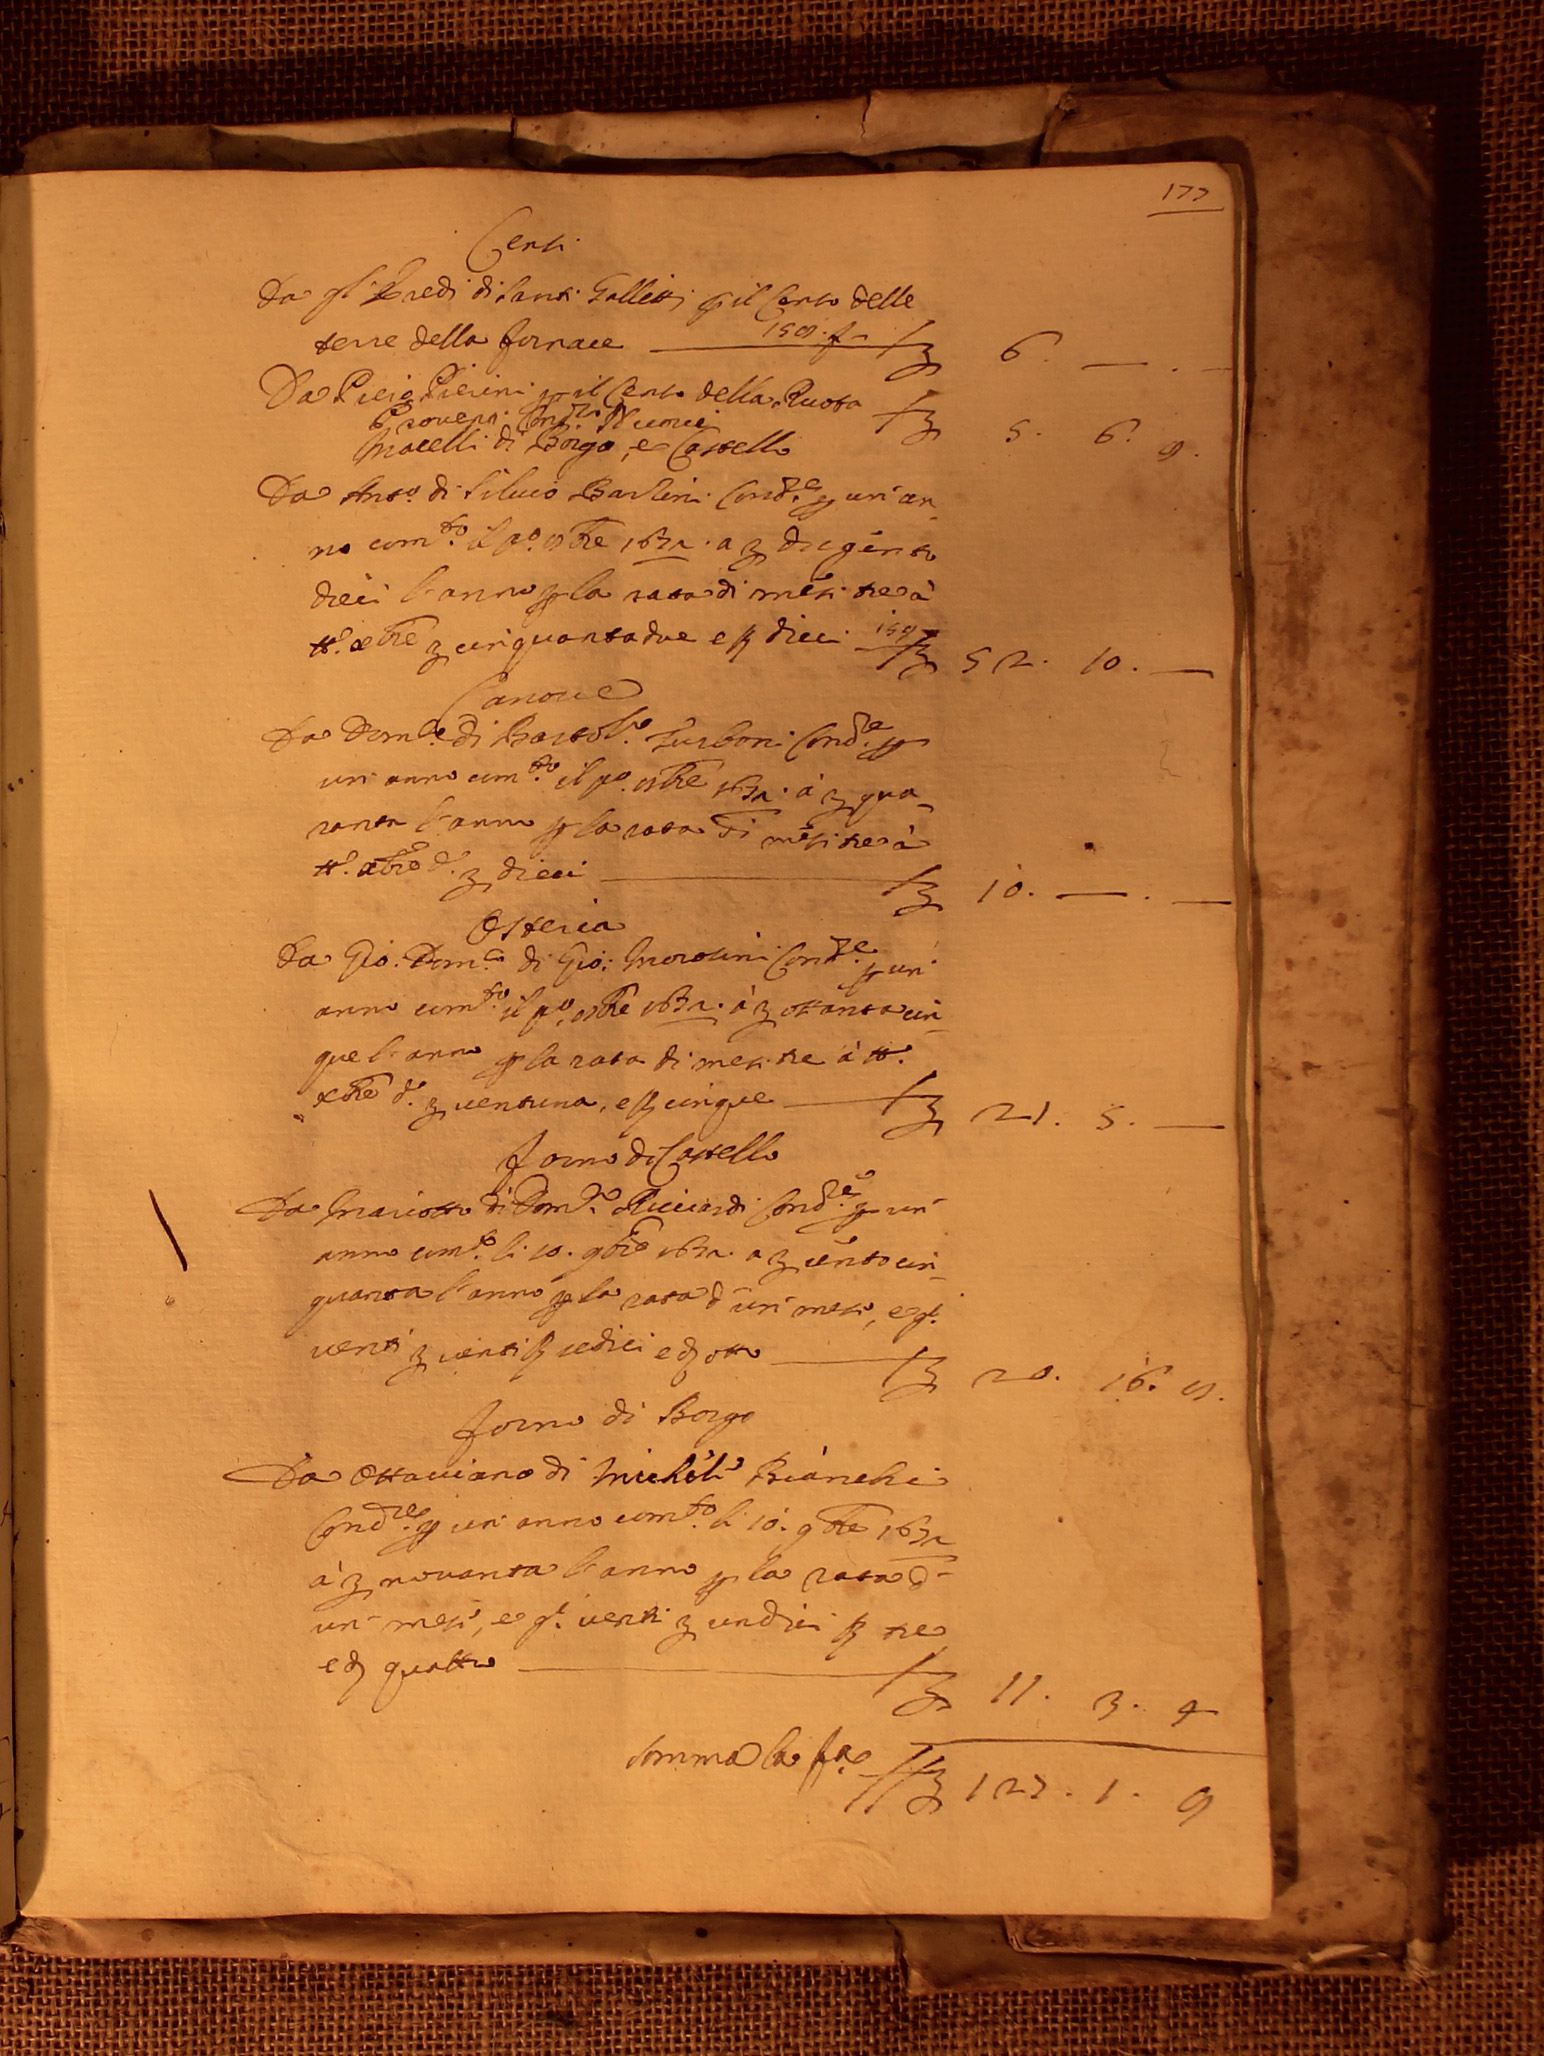 177
Censi
Da gl' Eredi di Santi Galletti p il Censo delle
terre della fornace 158. ſ 6. — . —
Da Pierg. Pierini p il Censo della Ruota
ſ 5. 6. 9.
Proven.
Macelli di Borgo, e Castello
Da Anto. di Silvio Bartini Cond.re p un an-
no com.to il po. 8bre 1632. a ſ dugento
dieci l'anno p la rata di mesi tre à
tt.o xbre ſ cinquantadue e ß dieci 159 ſ 52. 10. —
Canove
Da Dom.co di Bartol.o Turboni Cond.re p
un anno com.to il po. 8bre 1632. à ſ qua-
ranta l'anno p la rata di mesi tre à
tt.o xbre d.o ſ dieci ſ 10. — . —
Osteria
Da Gio: Dom.co di Gio: Morosini Cond.re p un
anno com.to il po. 8bre 1632. à ſ ottantacin-
que l'anno p la rata di mesi tre à tt.o
xbre d.o ſ ventuna, e ß cinque ſ 21. 5. —
forno di Castello
Da Mariotto di Dom.co Ricciardi Cond.re p un
anno com.to li 10. 9bre 1632. a ſ centocin-
quanta l'anno p la rata d'un mese, e g.i
venti ſ venti ß sedici e đ otto ſ 20. 16. 8.
forno di Borgo
Da Ottaviano di Michel.o Bianchi
Cond.re p un anno com.to li 10. 9bre 1632
à ſ novanta l'anno p la rata d'
un mese, e g.i venti ſ undici ß tre
e đ quattro ſ 11. 3. 4
Somma la fa. ſ 127. 1. 9